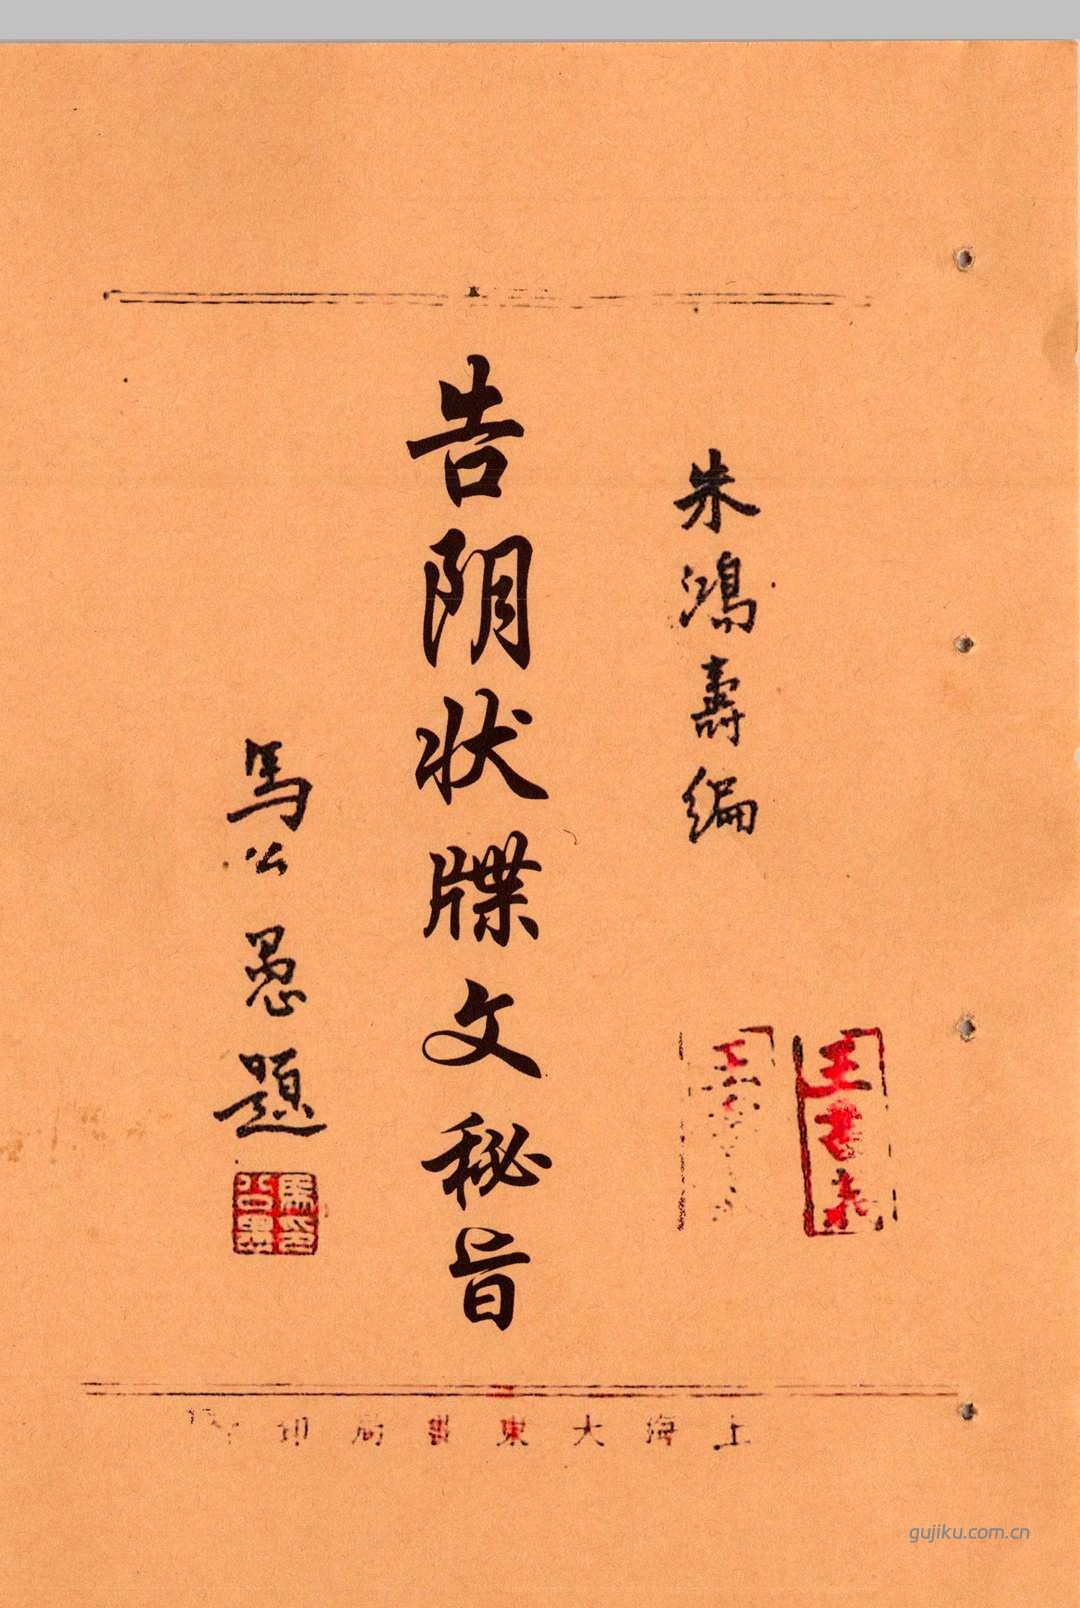 朱鴻壽編
告阴状牒文秘旨
馬公愚題
上海大東書局印
gujiku.com.cn